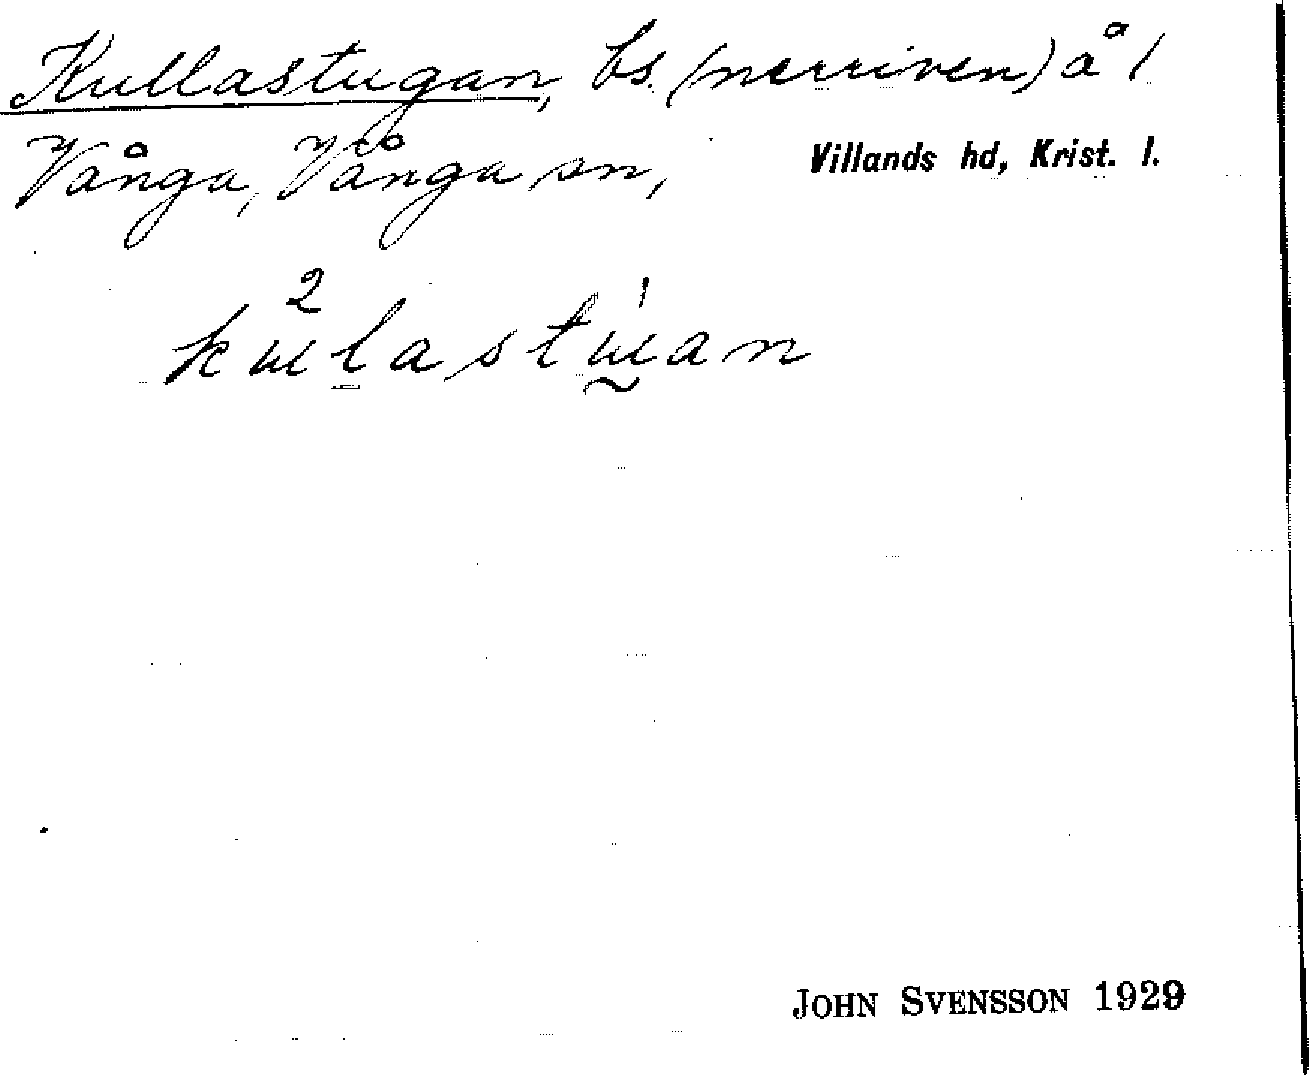 Kullastugan, bs. (nerriven) å 1
Vånga, Vånga sn, Villands hd, Krist. l.
kulastuan
JOHN SVENSSON 1929